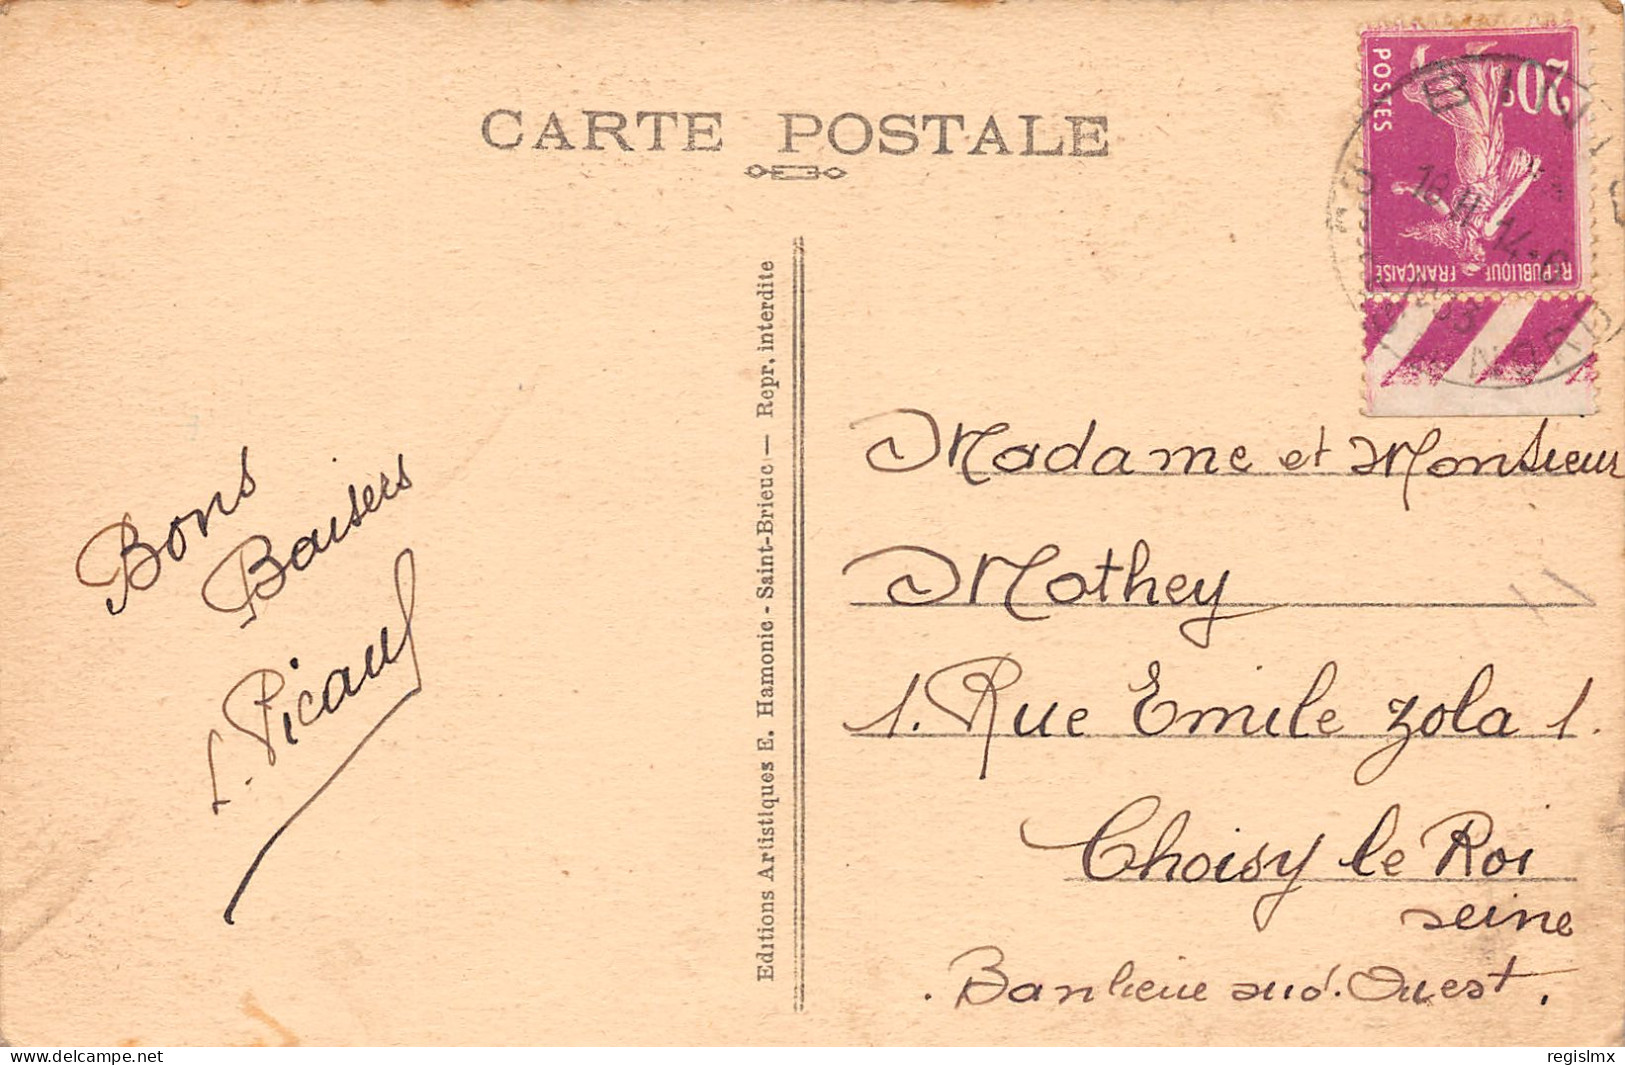 CARTE POSTALE
20c
POSTES
REPUBLIQUE FRANÇAISE
18 H 14-6
NORD
Bons
Baisers
L. Picaul
Editions Artistiques E. Hamonic - Saint-Brieuc — Repr. interdite
Madame et Monsieur
Mothey
1. Rue Emile Zola 1.
Choisy le Roi
seine
. Banlieue sud. Ouest.
delcampe.net
regislmx